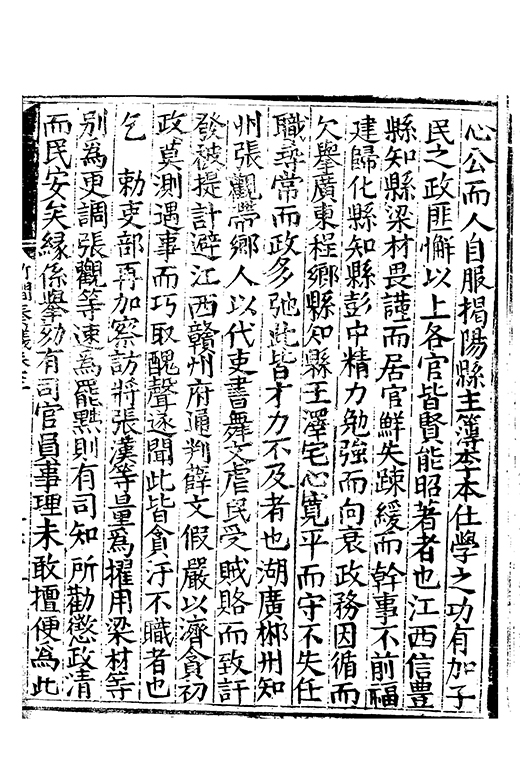 心公而人自服揭陽縣主簿李本仕學之功有加子
民之政匪懈以上各官皆賢能昭著者也江西信豊
縣知縣梁材畏謹而居官鮮失踈緩而幹事不前福
建歸化縣知縣彭中精力勉強而向衰政務因循而
欠舉廣東程鄉縣知縣王澤宅心寛平而守不失任
職尋常而政多弛此皆才力不及者也湖廣郴州知
州張觀帶鄉人以代吏書舞文虐民受賊賂而致訐
發被提計避江西贛州府通判薛文假嚴以濟貪刻
政莫測遇事而巧取醜聲遂聞此皆貪汙不職者也
乞　勅吏部再加察訪將張漢等量爲擢用梁材等
别爲更調張觀等速爲罷黜則有司知所勸懲政清
而民安矣縁係舉劾有司官員事理未敢擅便爲此